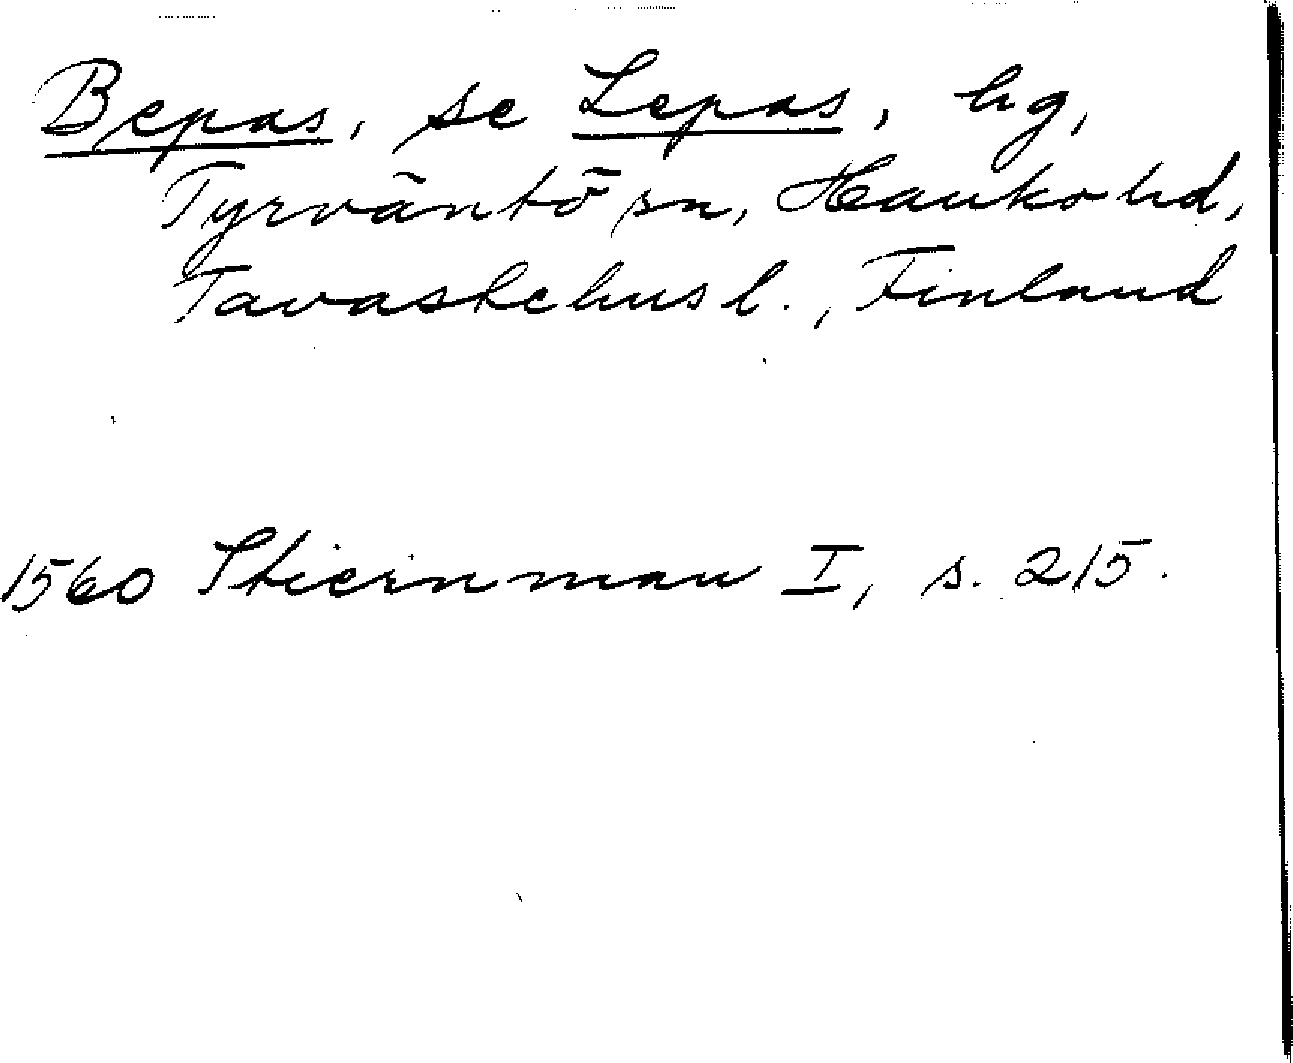 Bepas, se Lepas, hg,
Tyrväntö sn, Hauho hd,
Tavastehus l., Finland
1560 Stiernman I, s. 215.